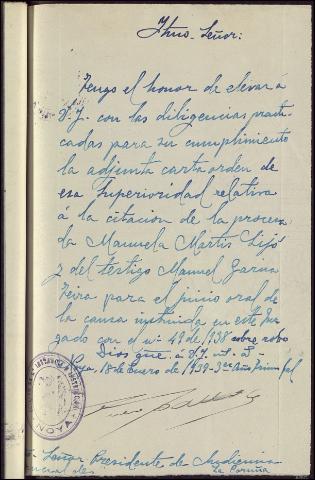 Iltmo. Señor:
Tengo el honor de elevar á
V.I. con las diligencias practi-
cadas para su cumplimiento
la adjunta carta orden de
esa Superioridad relativa
á la citación de la procesa
da Manuela Martis Lijó
y del testigo Manuel Garcia
Neira para el juicio oral de
la causa instruida en este Juz
gado con el nº 49 de 1938 sobre robo
Dios gue. á V.I. m. a.
Noya, 18 de Enero de 1939 - 3er Año Triunfal
NOYA
Señor Presidente de Audiencia
La Coruña